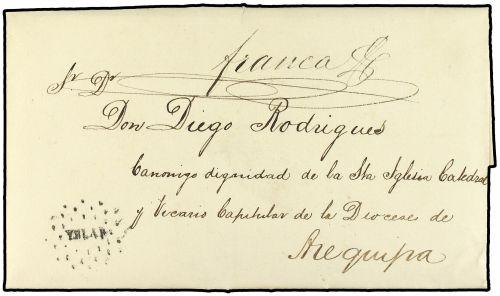 franca
Sr Dr
Don Diego Rodrigues
Canonigo dignidad de la Sta Iglesia Catedral
y Vicario Capitular de la Diocese de
Arequipa
YSLAI